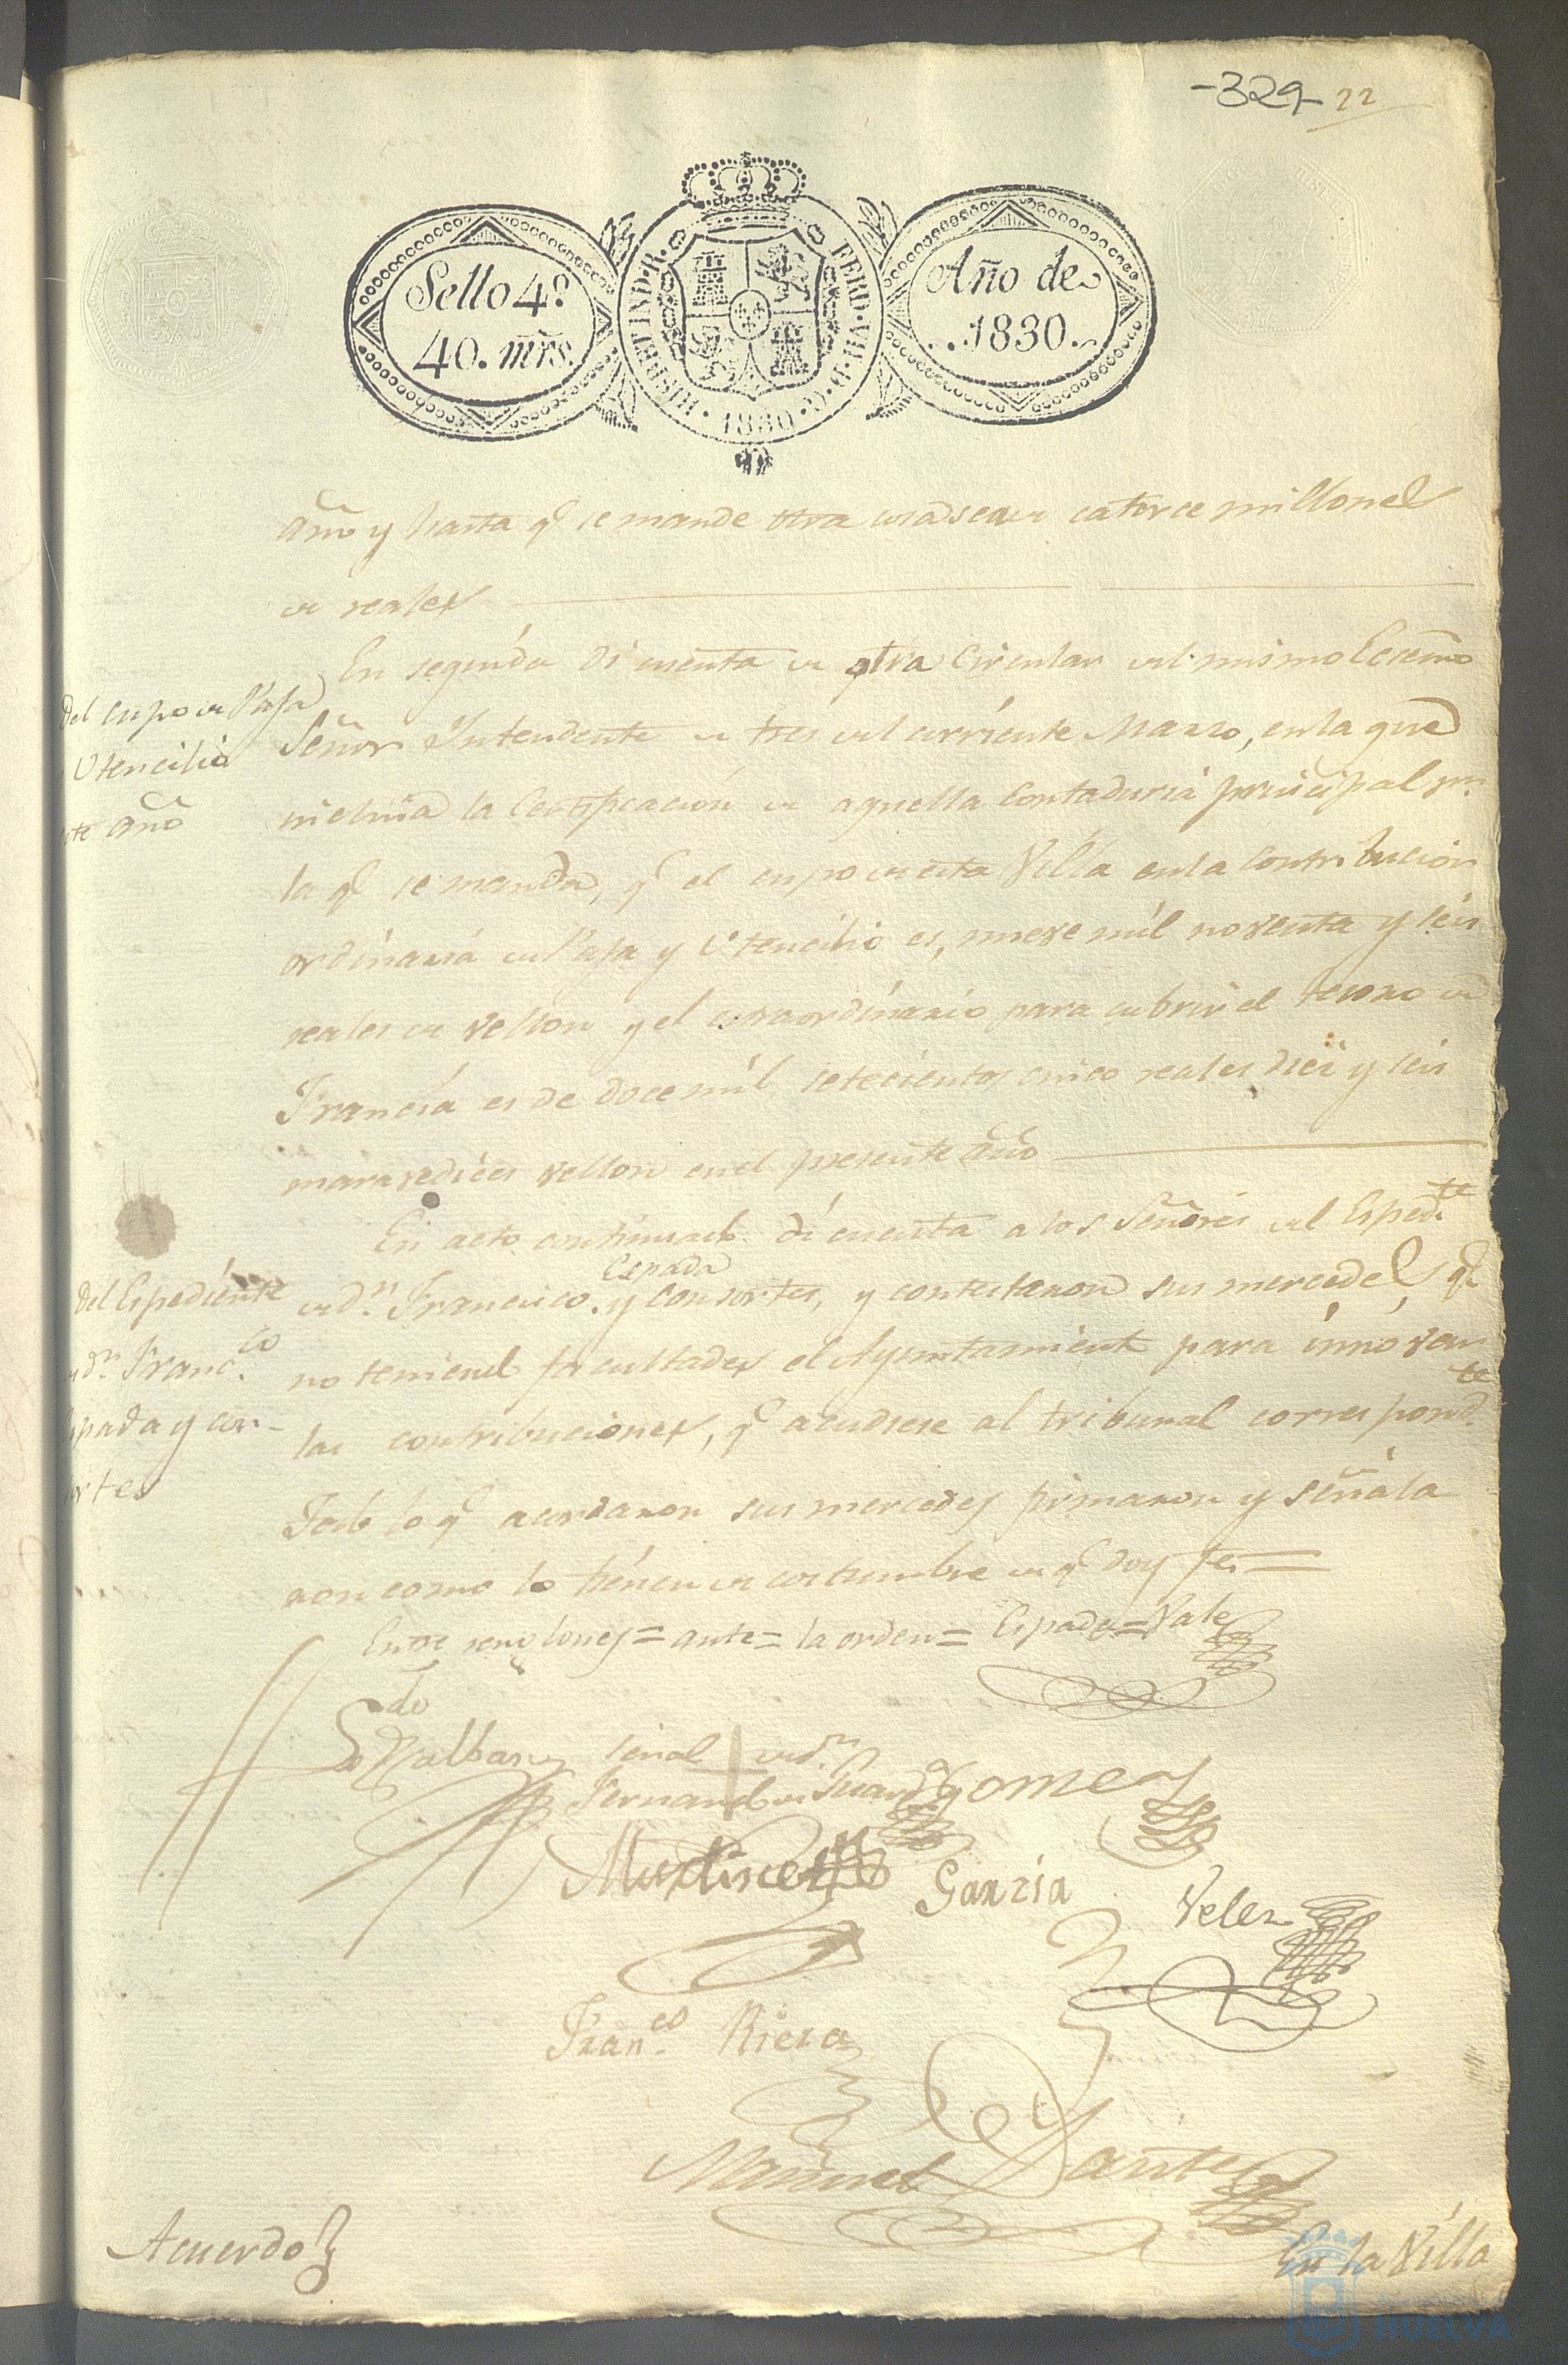 -329- 22
Sello 4º
40. mrs.
HISP. ET IND. R. FERD. VII. D. G. 1830
Año de
..1830..
Año y hasta q.e se mande otra cosa sea de catorce millones
de reales
En seguida di cuenta de otra Circular del mismo Ecsmo
Señor Intendente de tres del corriente Marzo, en la que
incluia la Certificacion de aquella Contaduria principal p.r
la q.e se manda, q.e el cupo de esta Villa en la contribucion
ordinaria de Paja y Utencilio es, nueve mil noventa y seis
reales de vellon y el estraordinario para cubrir el tesoro de
Francia es de doce mil setecientos cinco reales diez y seis
maravedices vellon en el presente año
Del cupo de Paja
Utencilio
ste año
En acto continuado di cuenta a los Señores del Esped.te
de d.n Francisco Espada y consortes, y contestaron sus mercedes q.e
no teniend facultades el Ayuntamiento para innovar
las contribuciones, q.e acudiese al tribunal correspond.te
Todo lo q.e acordaron sus mercedes firmaron y señala
ron como lo tienen de costumbre de q.e doy fe =
Del Espediente
d.n Franc.co
spada y con-
ortes
Entre renglones = ante = la orden = Espada = Vale
Ldo
Nalbarez
señal de d.n
Fernando de Suar
Gomez
Martinez
Garzia
Velez
Fran.co Riera
Manuel Dante
Acuerdo
En la Villa
HUELVA